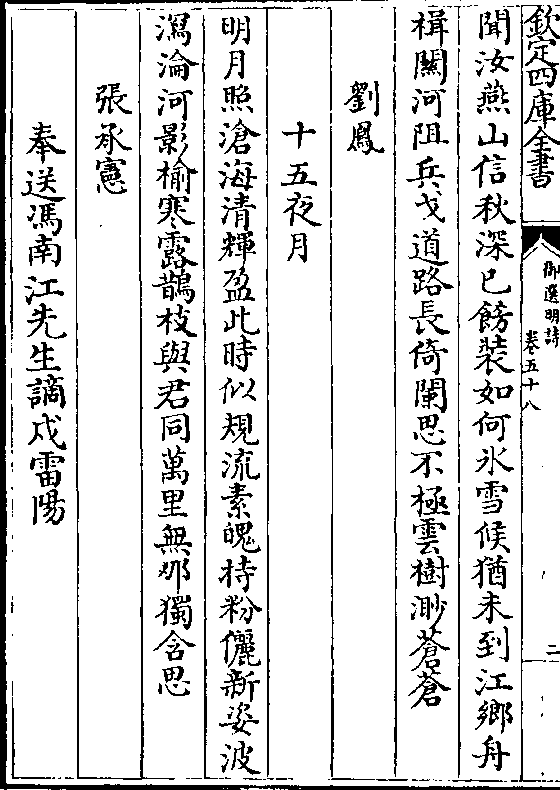 欽定四庫全書
御選明詩
卷五十八
二
聞汝燕山信秋深已餝裝如何氷雪候猶未到江鄉舟
楫關河阻兵戈道路長倚閑思不極雲樹渺蒼蒼
劉鳳
十五夜月
明月照滄海清輝盈此時似規流素魄持粉儷新姿波
瀉淪河影榆寒露鵲枝與君同萬里無那獨含思
張承憲
奉送馮南江先生謫戍雷陽